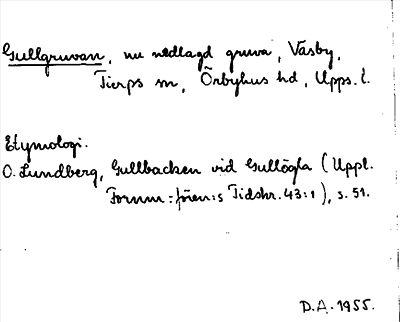 Gullgruvan, nu nedlagd gruva, Väsby,
Tierps sn, Örbyhus hd, Upps. l.
Etymologi.
O. Lundberg, Gullbacken vid Gullögla (Uppl.
Fornm:fören:s Tidskr. 43:1), s. 51.
D.A. 1955.